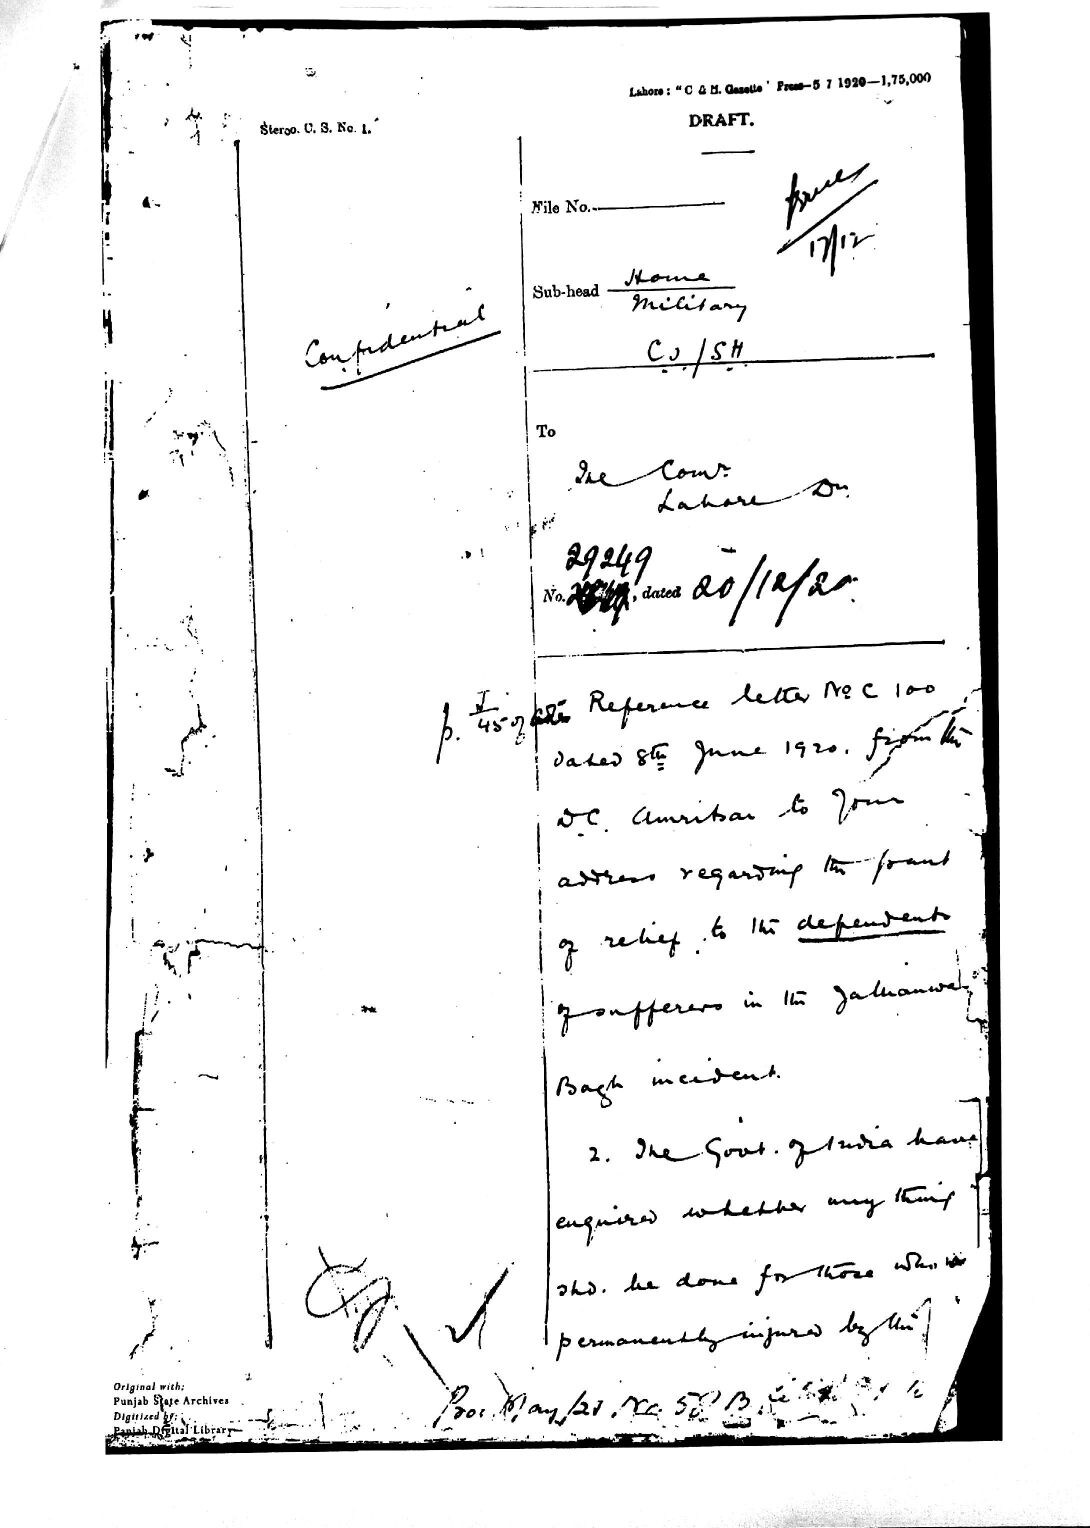 Lahore: "C & M. Gazette" Press—5 7 1920—1,75,000
Stereo. C. S. No. 1.
DRAFT.
File No.
17/12
Sub-head Home
Military
Confidential
To
The Comr.
Lahore Dn.
29249
No. , dated 20/12/20
p. I/45 of Reference letter No C 100
dated 8th June 1920. from the
D.C. Amritsar to your
address regarding the grant
of relief to the dependents
of sufferers in the Jallianwala
Bagh incident.
2. The Govt. of India have
enquired whether any thing
shd. be done for those who
permanently injured by the
Proc. May/20, No. 58 B.
Original with:
Punjab State Archives
Digitized by:
Panjab Digital Library